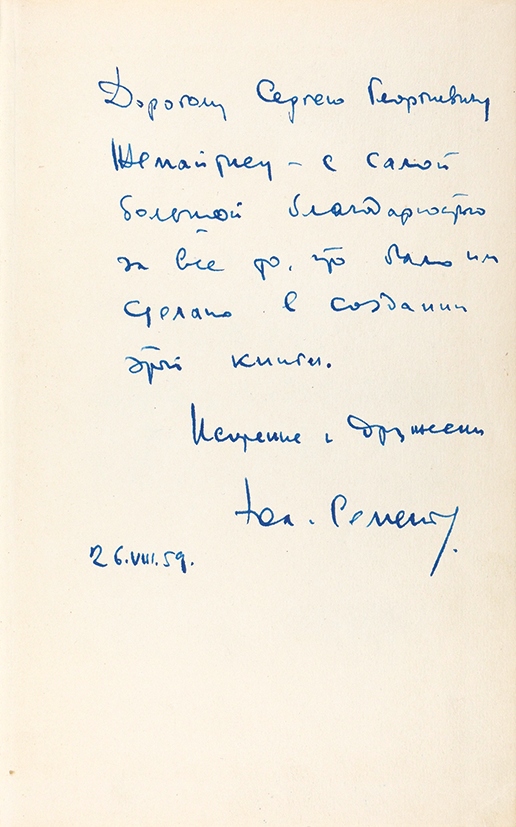 Дорогому Сергею Георгиевичу
– с самой
большой благодарностью
за все то, что было им
сделано в создании
этой книги.
Искренне и дружески
Юл. Семенов.
26.VIII.59.